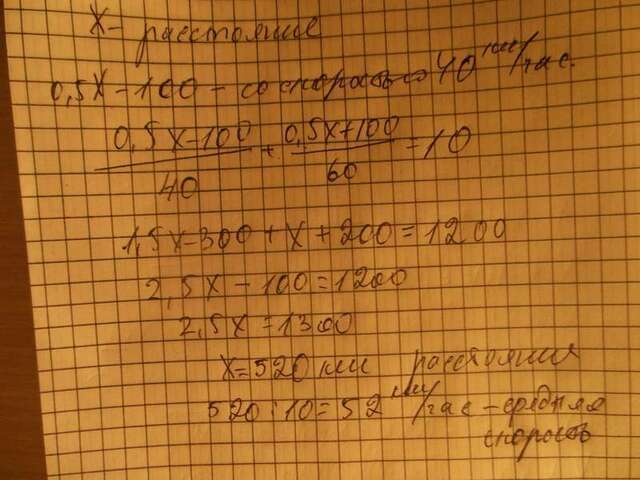 X - расстояние
0,5X - 100 - со скоростью 40 км/час.
0,5X-100 + 0,5X+100 = 10
40 60
1,5X-300 + X + 200 = 1200
2,5X - 100 = 1200
2,5X = 1300
X = 520 км расстояние
520 : 10 = 52 км/час - средняя
скорость